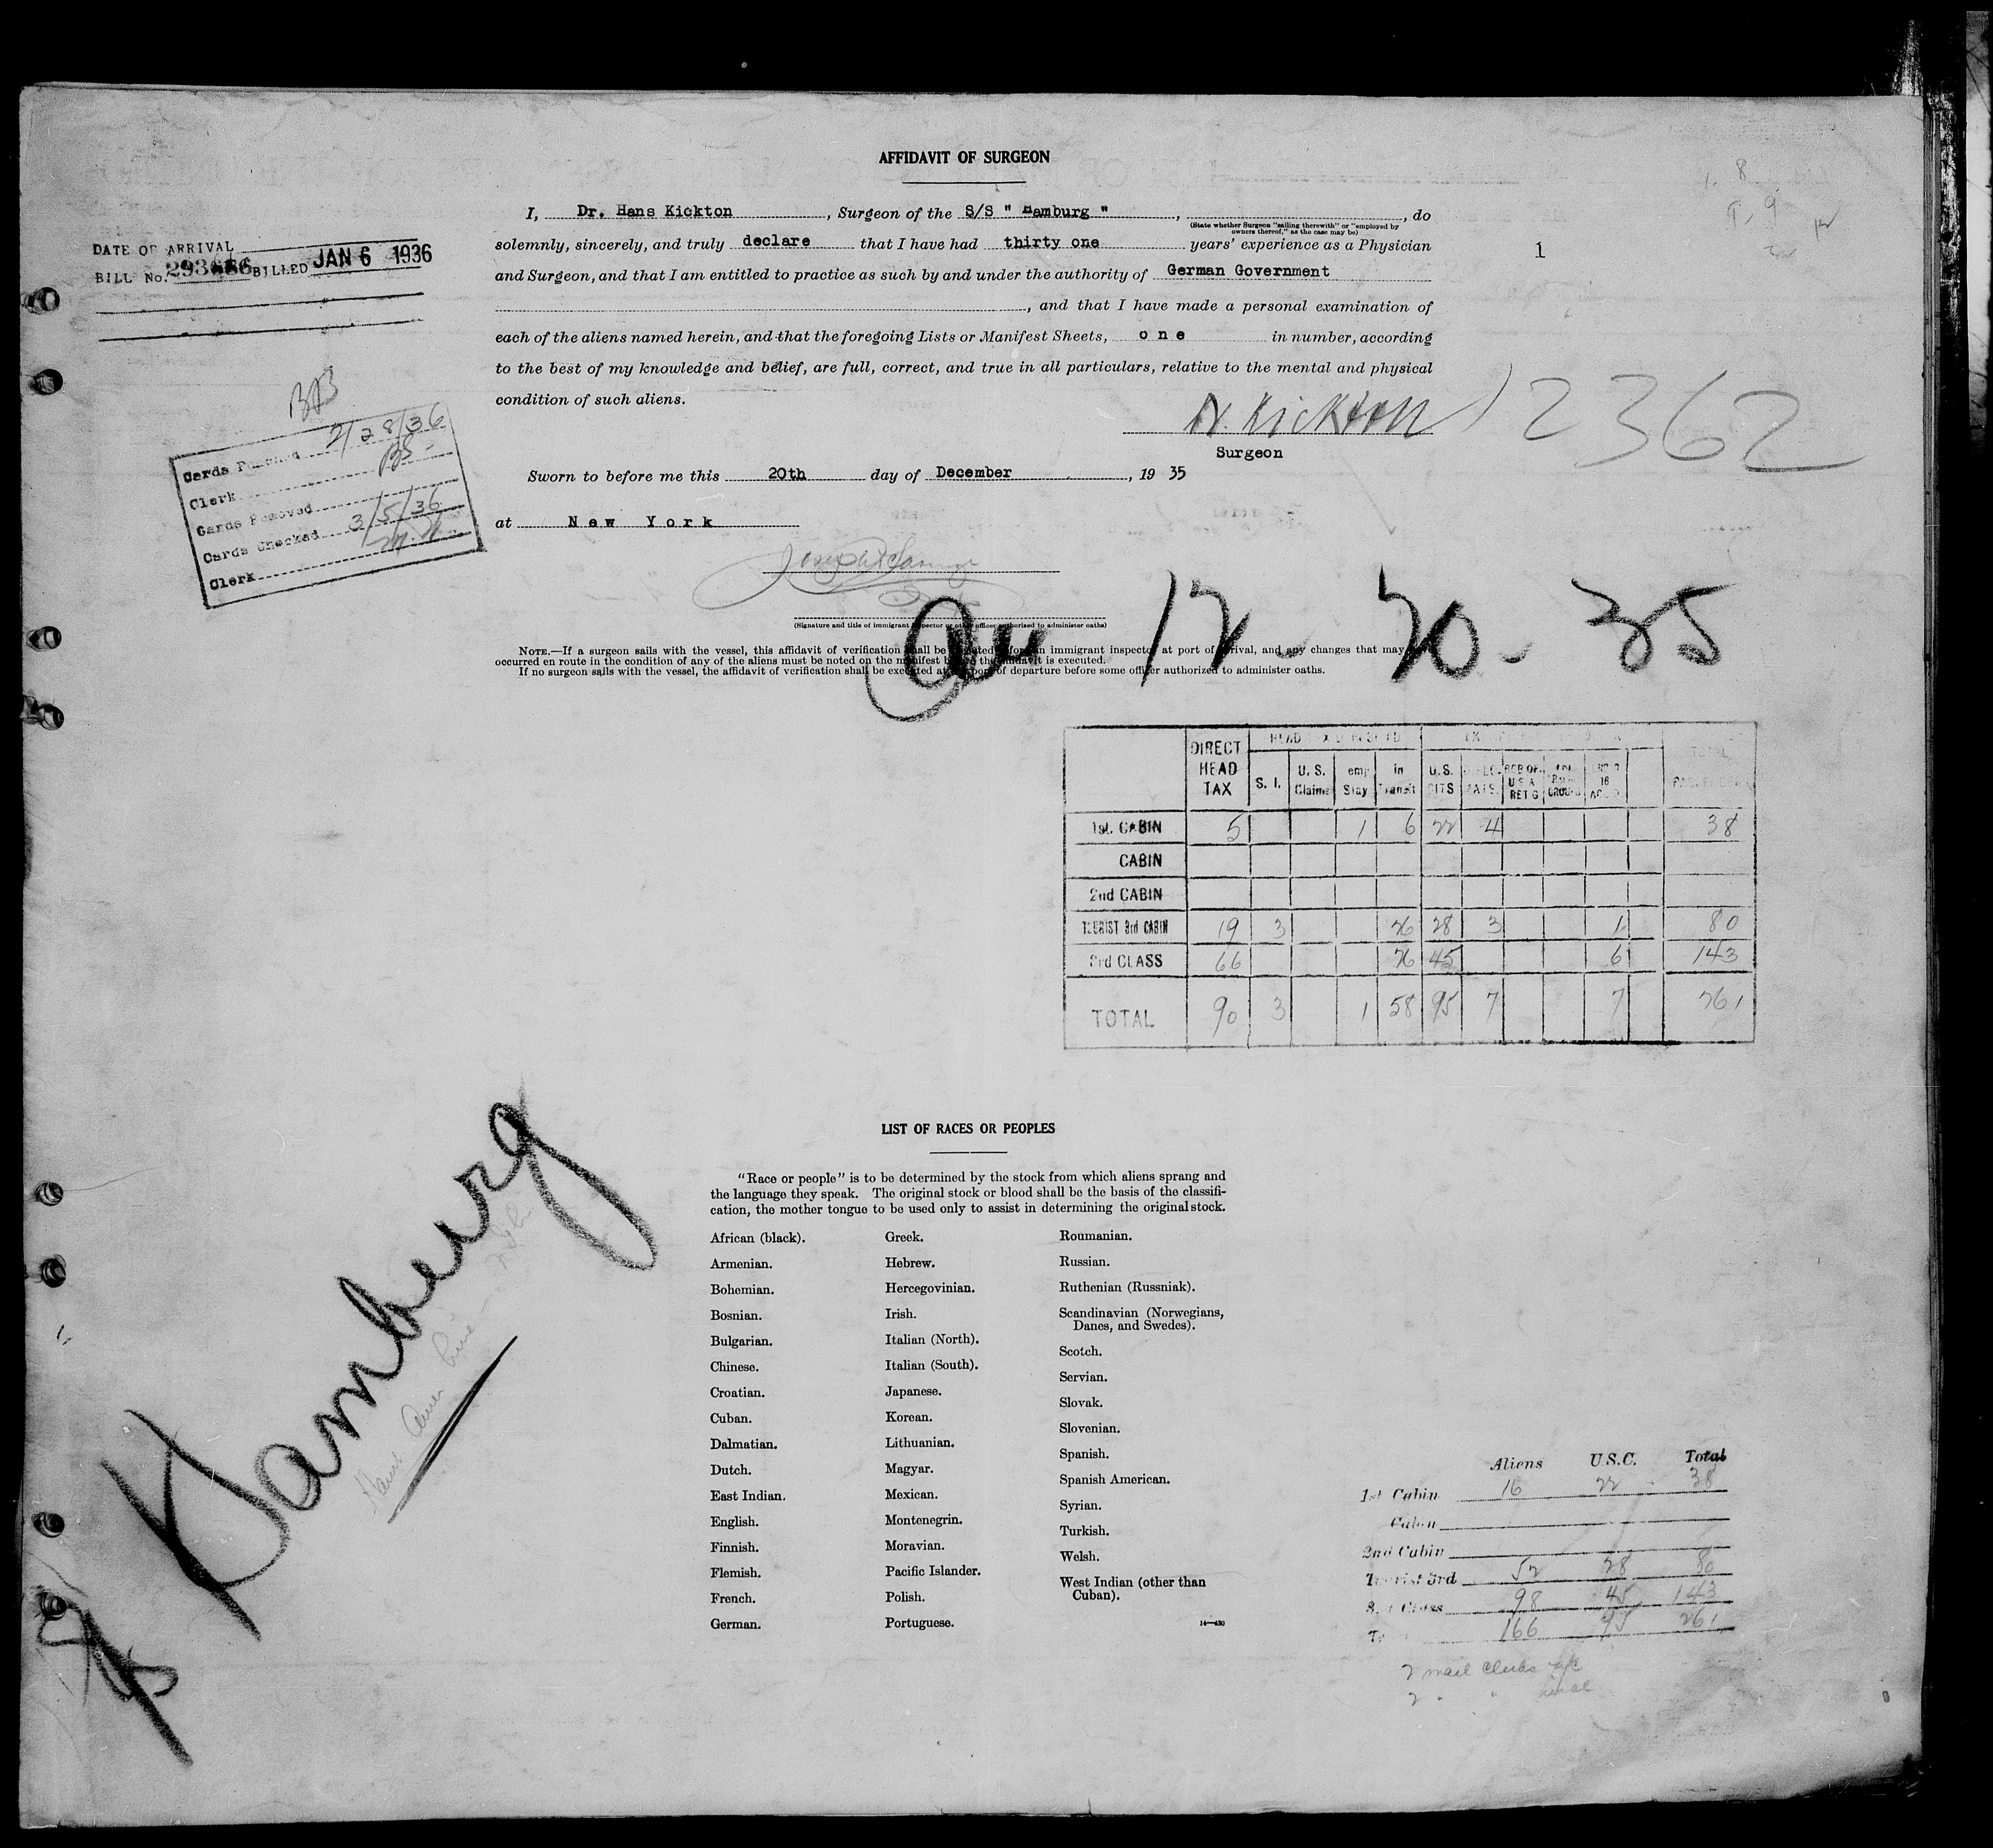 AFFIDAVIT OF SURGEON
I, Dr. Hans Kickton, Surgeon of the S/S " Hamburg ", , do
(State whether Surgeon "sailing therewith" or "employed by
owners thereof," as the case may be)
solemnly, sincerely, and truly declare that I have had thirty one years' experience as a Physician
and Surgeon, and that I am entitled to practice as such by and under the authority of German Government
, and that I have made a personal examination of
each of the aliens named herein, and that the foregoing Lists or Manifest Sheets, o n e in number, according
to the best of my knowledge and belief, are full, correct, and true in all particulars, relative to the mental and physical
condition of such aliens.
H. Kickton
Surgeon
Sworn to before me this 20th day of December, 19 35
at N e w Y o r k
(Signature and title of immigrant inspector or other officer authorized to administer oaths)
NOTE.—If a surgeon sails with the vessel, this affidavit of verification shall be executed before an immigrant inspector at port of arrival, and any changes that may
occurred en route in the condition of any of the aliens must be noted on the manifest before the affidavit is executed.
If no surgeon sails with the vessel, the affidavit of verification shall be executed at port of departure before some officer authorized to administer oaths.
DATE OF ARRIVAL
BILL No. BILLED JAN 6 1936
1
12362
Cards 2/28/36
Clerk
Cards Removed
Cards Checked 3/5/36
Clerk
12-20-35
DIRECT HEAD TAX S. I. U. S. Claims Stay in Transit U.S. CITS TOTAL
1st. CABIN 5 1 6 22 4 38
CABIN
2nd CABIN
TOURIST 3rd CABIN 19 3 26 28 3 1 80
3rd CLASS 66 26 45 6 143
TOTAL 90 3 1 58 95 7 7 261
Hamburg
LIST OF RACES OR PEOPLES
"Race or people" is to be determined by the stock from which aliens sprang and
the language they speak. The original stock or blood shall be the basis of the classifi-
cation, the mother tongue to be used only to assist in determining the original stock.
African (black).
Armenian.
Bohemian.
Bosnian.
Bulgarian.
Chinese.
Croatian.
Cuban.
Dalmatian.
Dutch.
East Indian.
English.
Finnish.
Flemish.
French.
German.
Greek.
Hebrew.
Hercegovinian.
Irish.
Italian (North).
Italian (South).
Japanese.
Korean.
Lithuanian.
Magyar.
Mexican.
Montenegrin.
Moravian.
Pacific Islander.
Polish.
Portuguese.
Roumanian.
Russian.
Ruthenian (Russniak).
Scandinavian (Norwegians,
Danes, and Swedes).
Scotch.
Servian.
Slovak.
Slovenian.
Spanish.
Spanish American.
Syrian.
Turkish.
Welsh.
West Indian (other than
Cuban).
14—430
Aliens U.S.C. Total
1st Cabin 16 22 38
Cabin
2nd Cabin
Tourist 3rd 52 28 80
3rd Class 98 45 143
166 95 261
2 mail Clerks